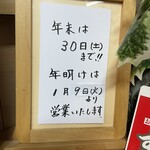 年末は
30日(土)
まで!!
年明けは
1月9日(火)
より
営業いたします